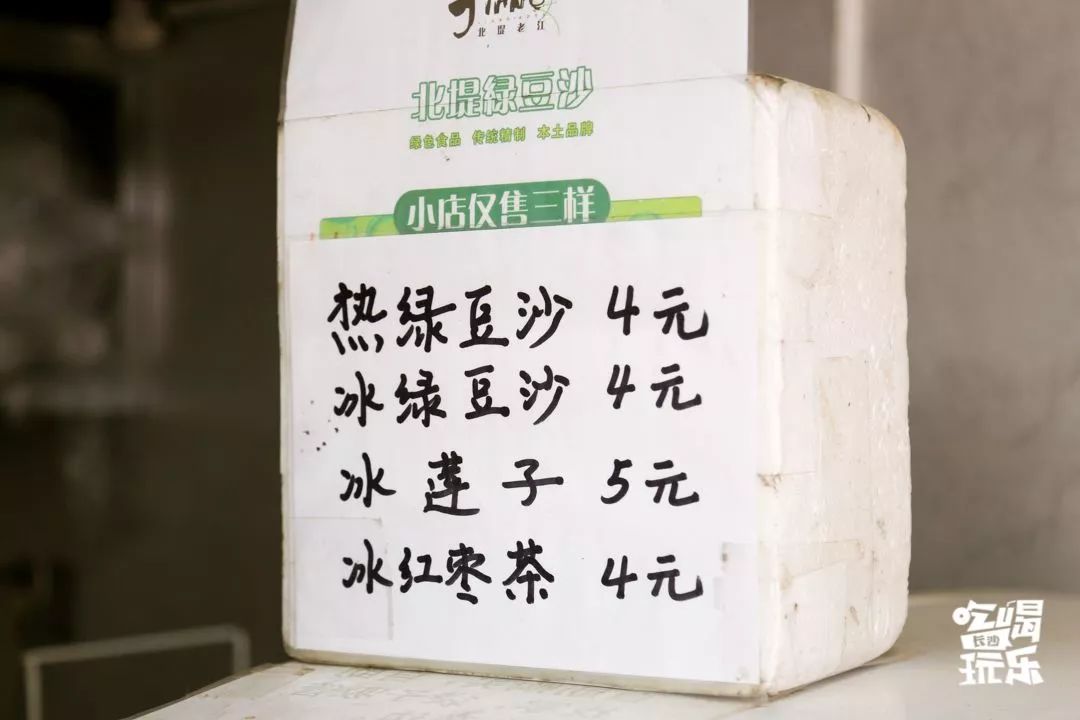 北堤老江
北堤緑豆沙
绿色食品 传统精制 本土品牌
小店仅售三样
热绿豆沙 4元
冰绿豆沙 4元
冰莲子 5元
冰红枣茶 4元
吃喝
长沙
玩乐